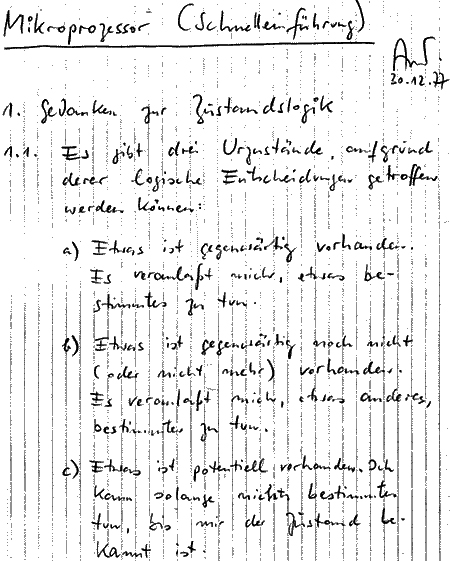 Mikroprozessor (Schnelleinführung)
20.12.77
1. Gedanken zur Zustandslogik
1.1. Es gibt drei Urzustände, aufgrund
derer logische Entscheidungen getroffen
werden können:
a) Etwas ist gegenwärtig vorhanden.
Es veranlaßt mich, etwas be-
stimmtes zu tun.
b) Etwas ist gegenwärtig noch nicht
(oder nicht mehr) vorhanden.
Es veranlaßt mich, etwas anderes,
bestimmtes zu tun.
c) Etwas ist potentiell vorhanden. Ich
kann solange nichts bestimmtes
tun, bis mir der Zustand be-
kannt ist.